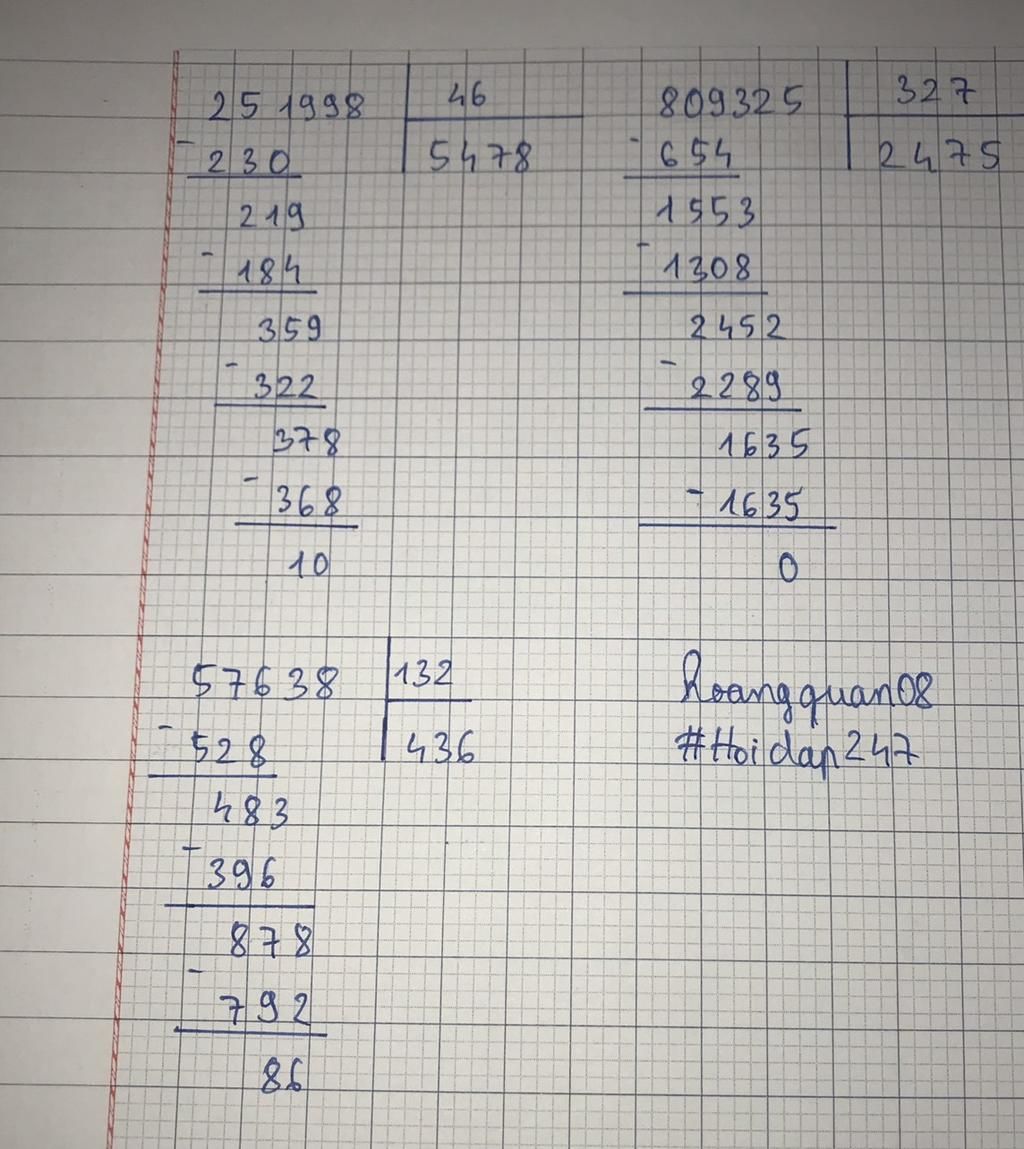 251998 46
- 230 5478
219
- 184
359
- 322
378
- 368
10
809325 327
- 654 2475
1553
- 1308
2452
- 2289
1635
- 1635
0
57638 132
- 528 436
483
- 396
878
- 792
86
Hoangquan08
#Hoidap247